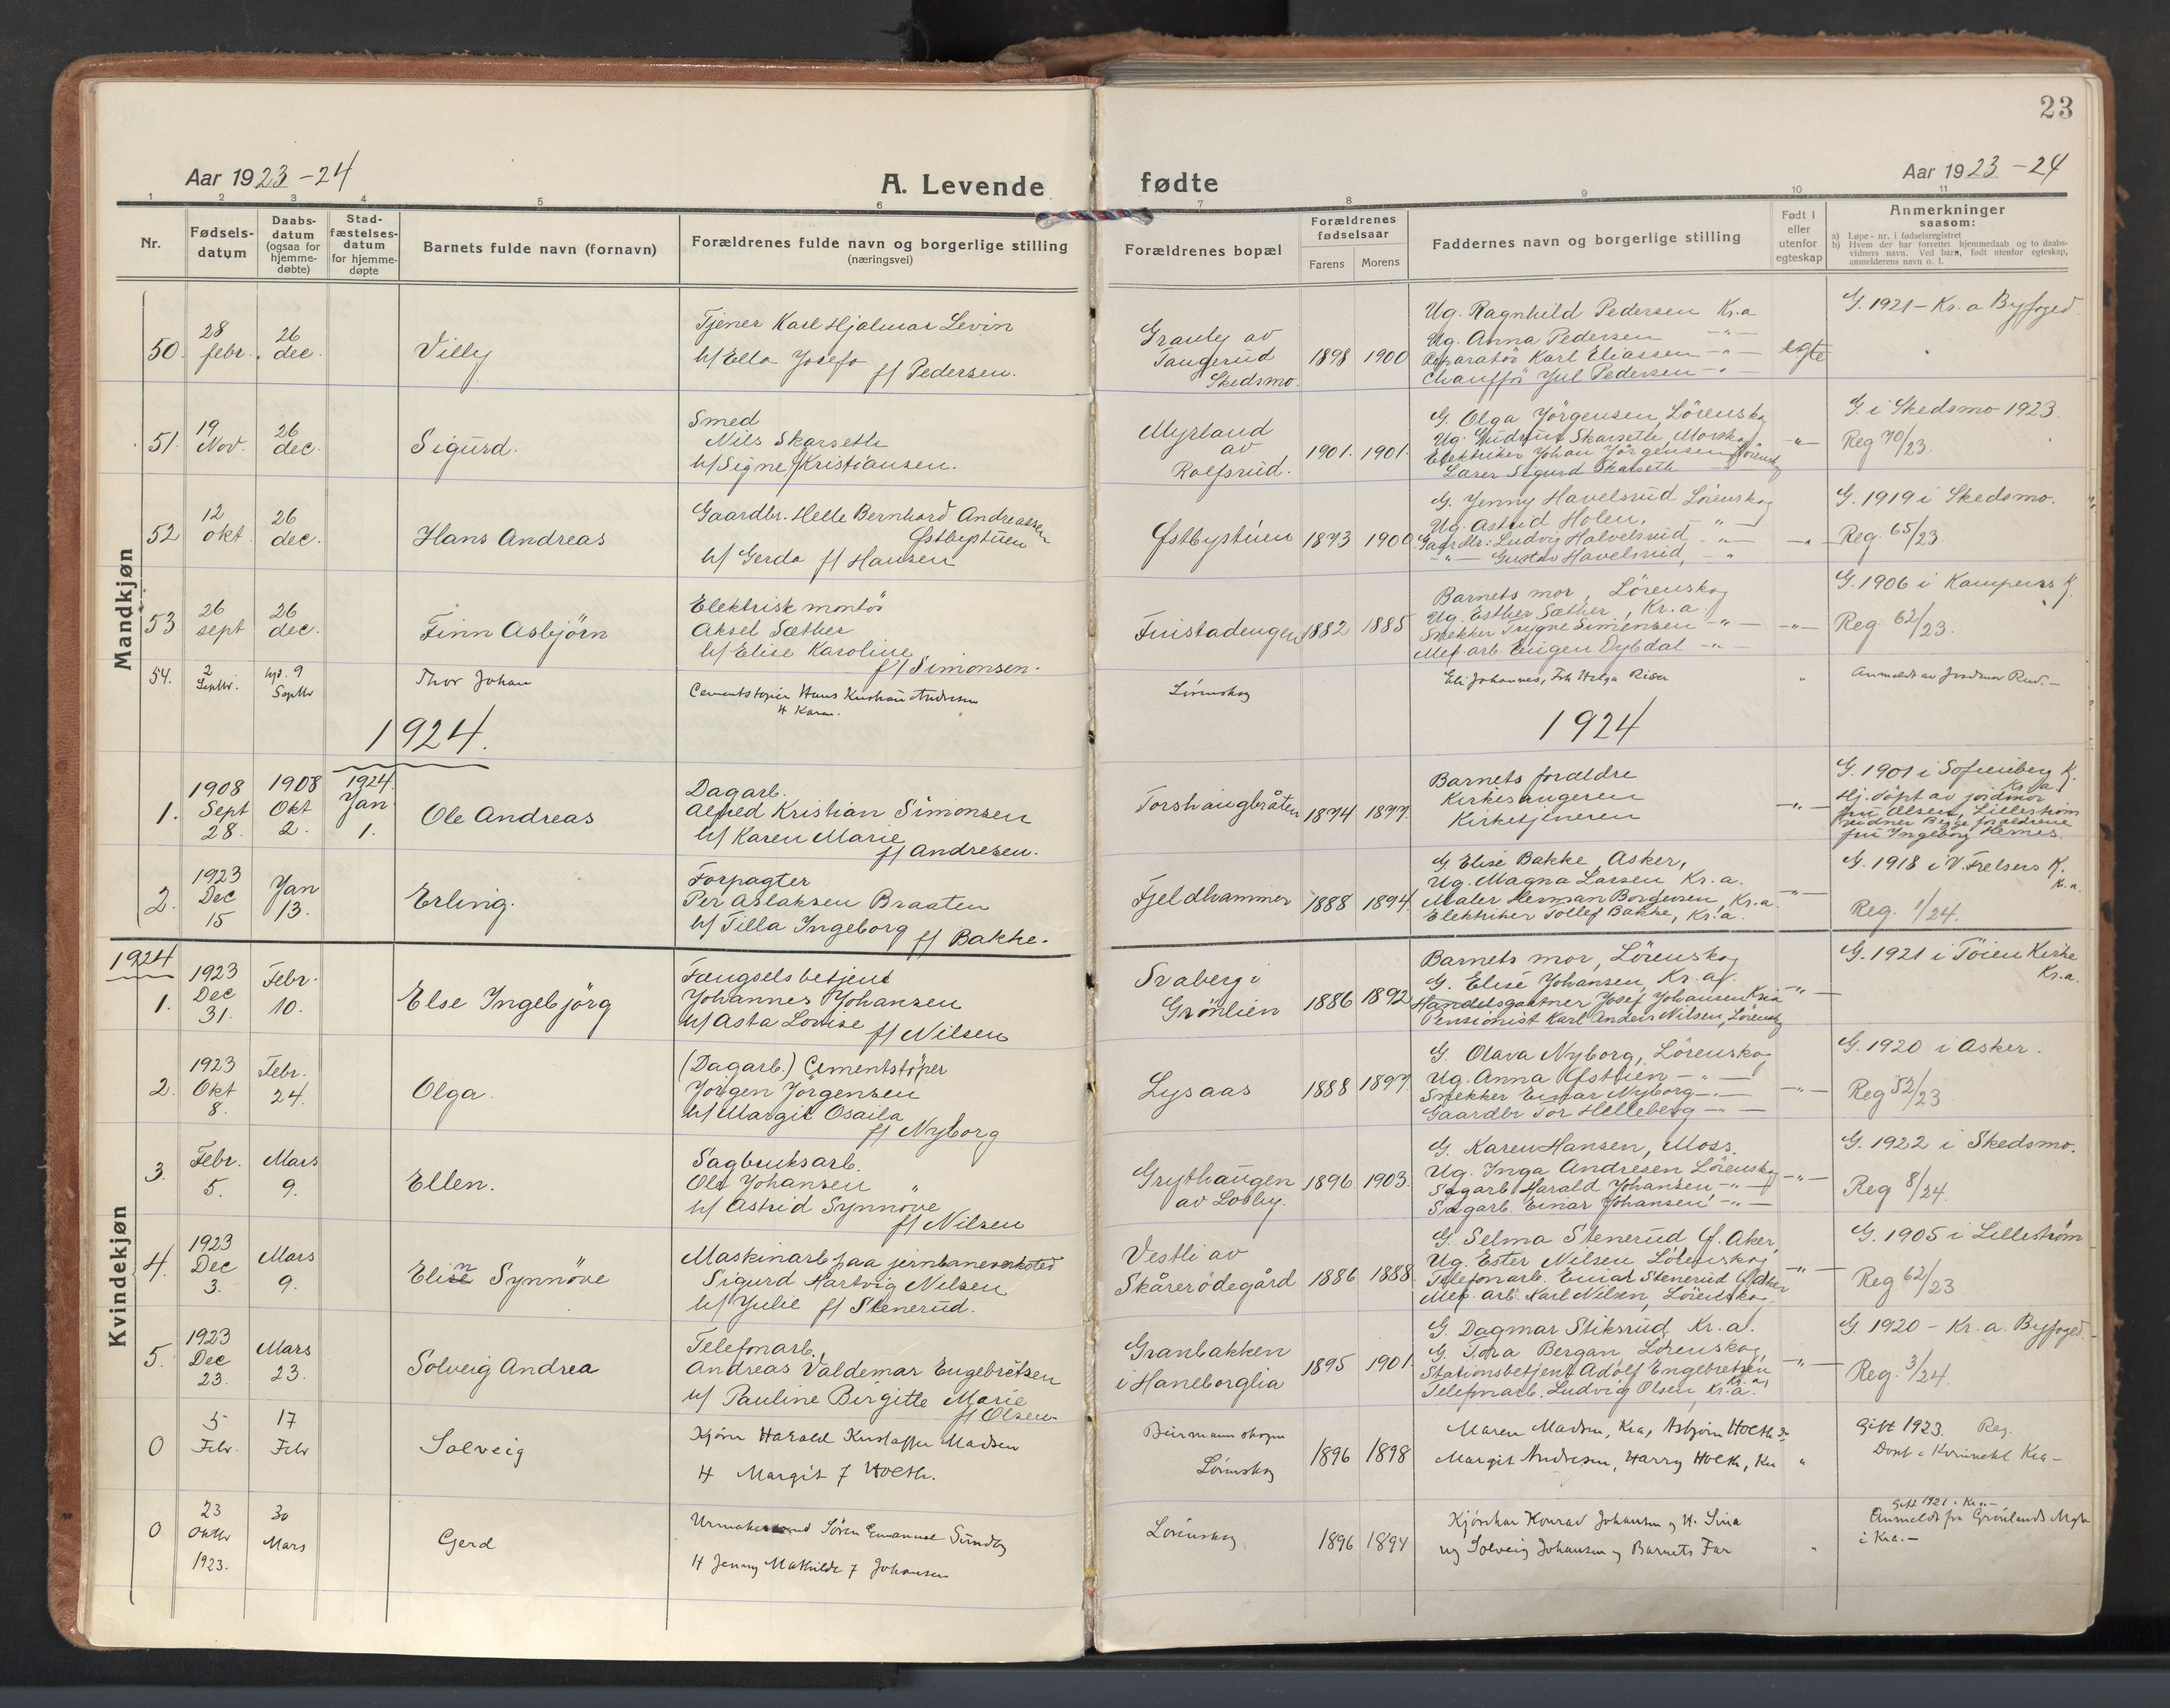 23
Aar 1923-24
A. Levende
fødte
Aar 1923-24
1 2 3 4 5 6 7 8 9 10 11
Nr.
Fødsels-
datum
Daabs-
datum
(ogsaa for
hjemme-
døbte)
Stad-
fæstelses-
datum
for hjemme-
døpte
Barnets fulde navn (fornavn)
Forældrenes fulde navn og borgerlige stilling
(næringsvei)
Forældrenes bopæl
Forældrenes
fødselsaar
Farens
Morens
Faddernes navn og borgerlige stilling
Født i
eller
utenfor
egteskap
Anmerkninger
saasom:
a) Løpe-nr. i fødselsregistret
b) Hvem der har forrettet hjemmedaab og to daabs-
vidners navn. Ved barn, født utenfor egteskap,
anmelderens navn o. l.
Mandkjøn
50.
28
febr.
26
dec.
Villy
Tjener Karl Hjalmar Levin
h/ Ella Josefa
f/ Pedersen.
Granly av
Tangerud
Skedsmo.
1898
1900
Ug. Ragnhild Pedersen Kr.a
Ug. Anna Pedersen -"-
Reparatör Karl Eliassen -"-
Chaufför Jul Pedersen -"-
egte
G. 1921 - Kr.a Byfoged.
51.
19
Nov.
26
dec.
Sigurd.
Smed
Nils Skarseth
h/ Signe f/ Kristiansen.
Myrland
av
Rolfsrud.
1901.
1901.
G. Olga Jörgensen, Lörenskog
Ug. Gudrun Skarseth,
Elektriker Johan Jörgensen, Lörenskog
Lærer Sigurd Skarseth -"-
-"-
G. i Skedsmo 1923.
Reg 70/23.
52
12
okt.
26
dec.
Hans Andreas
Gaardbr. Helle Bernhard Andreassen
Østbystuen
h/ Gerda f/ Hansen
Østbystuen
1873
1900
G. Jenny Havelsrud Lörenskog
Ug. Astrid Holen, -"-
Gaardbr: Ludvig Halvelsrud -"-
-"- Gustav Havelsrud, -"-
-"-
G. 1919 i Skedsmo.
Reg. 65/23.
53
26
sept
26
dec.
Finn Asbjörn
Elektrisk montör
Aksel Sæther
h/ Elise Karoline
f/ Simonsen.
Finstadengen
1882
1885
Barnets mor, Lörenskog
Ug. Esther Sæther, Kr.a.
Snekker Trygve Simensen -"-
Mek. arb. Eugen Dybdal -"-
-"-
G. 1906 i Kampens K.
Reg. 62/23.
54.
2
Septbr.
hjd. 9
Septbr
Thor Johan
Cementstøper Hans Kristian Andresen
H Karen.
Lørenskog
Eli Johannes, Frk Helga Riser
"
Anmeldt av Jordmor Rud.-
1924.
1924
1.
1908
Sept
28.
1908
Okt
2.
1924.
Jan
1.
Ole Andreas
Dagarb.
Alfred Kristian Simonsen
h/ Karen Marie
f/ Andresen.
Torshaugbråten
1874
1877.
Barnets foraldre
Kirkesangeren
Kirketjeneren
-"-
G. 1901 i Sofienberg K.
Kr.a.
Hj. döpt av jordmor
fru Olsen, Lilleström
vidner Begge foraldrene
fru Ingeborg Hernes.
2.
1923
Dec
15
Jan
13.
Erling.
Forpagter
Per Aslaksen Braaten
h/ Tilla Ingeborg f/ Bakke.
Fjeldhammer
1888
1894.
G. Elise Bakke, Asker,
Ug. Magna Larsen Kr.a.
Maler Herman Bordersen, Kr.a.
Elektriker Tollef Bakke, Kr.a.
-"-
G. 1918 i V. Frelsers K.
Kr.a.
Reg. 1/24.
1924
Kvindekjøn
1.
1923
Dec
31.
Febr.
10.
Else Ingebjörg
Fængselsbetjent
Johannes Johansen
h/ Asta Lovise f/ Nilsen
Svaberg i
Grönlien
1886
1892
Barnets mor, Lörenskog
G. Elise Johansen, Kr.a.
Handelsgartner Josef Johansen Kria
Pensionist Karl Anders Nilsen, Lörenskog
-"-
G. 1921 i Töien Kirke
Kr.a.
2.
1923
Okt
8.
Febr.
24.
Olga.
(Dagarb.) Cementstöper
Jörgen Jörgensen
h/ Margit Osaila
f/ Nyborg
Lysaas
1888
1897.
G. Olava Nyborg, Lörenskog
Ug. Anna Østlien -"-
Snekker Einar Nyborg -"-
Gaardbr Tor Helleberg -"-
-"-
G. 1920 i Asker.
Reg 52/23
3.
Febr.
5.
Mars
9.
Ellen.
Sagbruksarb.
Ole Johansen
h/ Astrid Synnöve
f/ Nilsen
Grythaugen
av Losby.
1896
1903.
G. Karen Hansen, Moss.
Ug. Inga Andresen Lörenskog
Sagarb Harald Johansen -"-
Sagarb. Einar Johansen -"-
-"-
G. 1922 i Skedsmo.
Reg 8/24.
4.
1923
Dec
3.
Mars
9.
Elin Synnöve
Maskinarb. paa jernbaneverksted
Sigurd Hartvig Nilsen
h/ Julie f/ Stenerud.
Vestli av
Skårerödegård
1886
1888.
G. Selma Stenerud Ø. Aker,
Ug. Ester Nilsen Lörenskog
Telefonarb. Einar Stenerud Ø. Aker
Mek. arb. Karl Nilsen, Lörenskog
-"-
G. 1905 i Lilleström
Reg 62/23
5.
1923
Dec
23.
Mars
23.
Solveig Andrea
Telefonarb.
Andreas Valdemar Engebretsen
h/ Pauline Birgitte Marie
f/ Olsen
Granbakken
i Haneborglia
1895
1901.
G. Dagmar Stiksrud, Kr.a.
G. Tora Bergan Lörenskog,
Stationsbetjent Adolf Engebretsen
Kr.a.
Telefonarb. Ludvig Olsen, Kr.a.
-"-
G. 1920 - Kr.a. Byfoged.
Reg. 3/24.
0
5
Febr.
17
Febr
Solveig
Kjører Harald Kristoffer Madsen
H Margit f Hoeth.
Lørenskog
1896
1898
Maren Madsen, Kra, Asbjørn Hoeth do
Margit Andresen, Harry Hoeth, Kra
"
Gift 1923. Reg.
Døpt i Kra-
0
23
Oktbr
1923.
30
Mars
Gerd
Søren Emanuel Sundby
H Jenny Mathilde f Johansen
Lørenskog
1896
1894
Konrad Johansen og H. Lina
ug Solveig Johansen og Barnets Far
"
Gift 1921 i Kra.-
Anmeldt fra Grønlands Mgk
i Kra.-